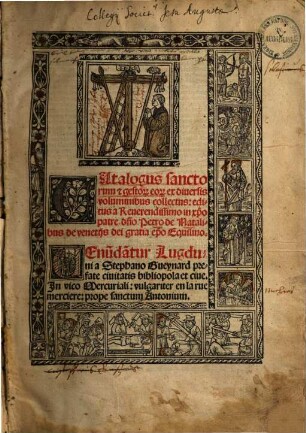 Collegij Societ. Jesu Augustæ
Catalogus sancto
rum ⁊ gestoꝝ eoꝝ ex diuersis
voluminibus collectus: edi
tus a Reuerendissimo in xp̄o
patre dño Petro de Natali
bus de venetijs dei gratia ep̄o Equilino.
Venũdãtur Lugdu
ni a Stephano Gueynard pre
fate ciuitatis bibliopola et ciue.
In vico Mercuriali: vulgariter en la rue
merciere: prope sanctum Antonium.